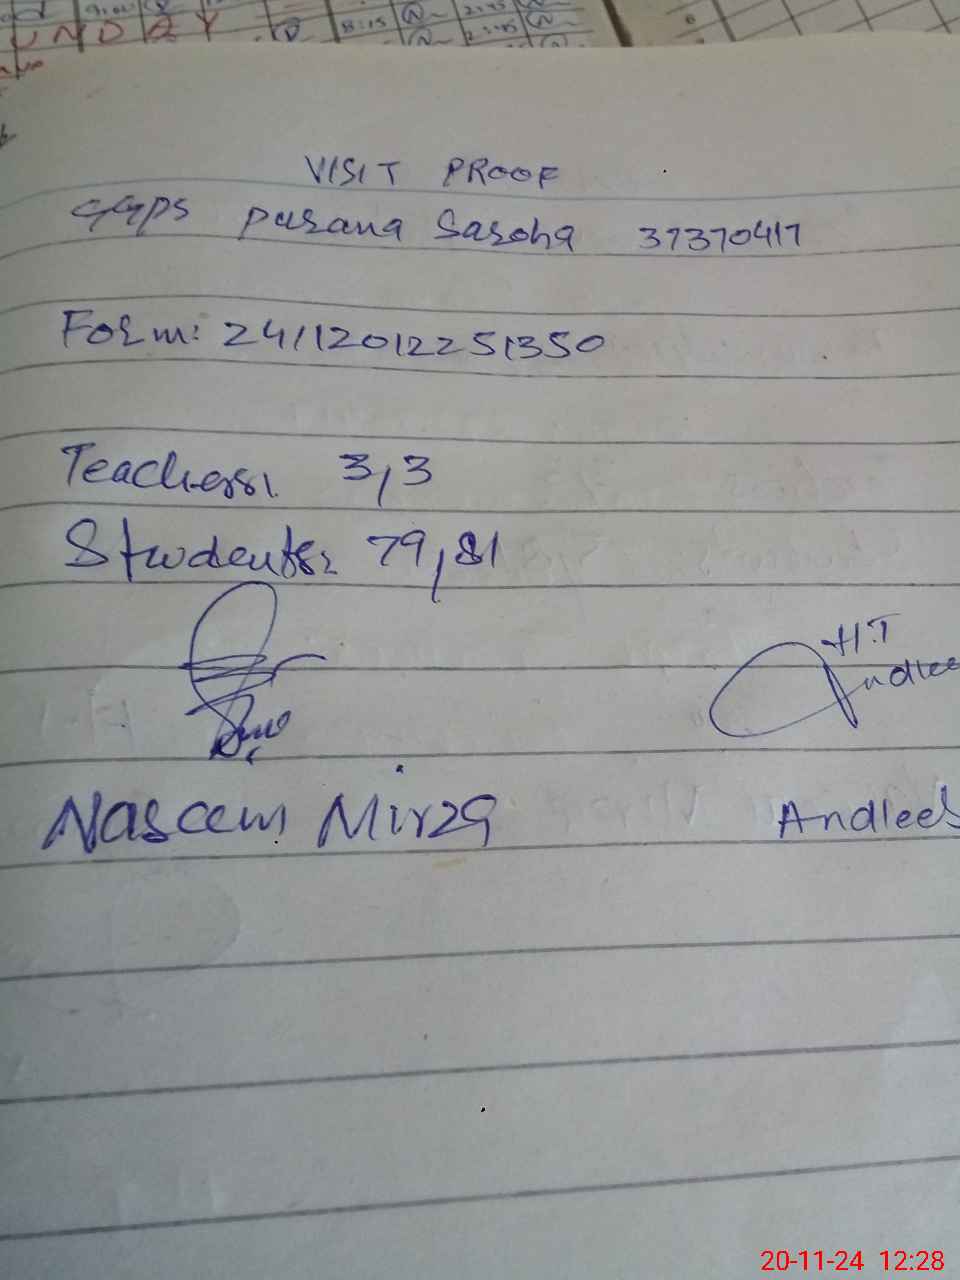 UNDAY
8:15
VISIT PROOF
GGPS Purana Saroha 37370417
Form: 24112012251350
Teachers: 3,3
Students: 79,81
H.T
Andlee
Naseem Mirza Andleeb
20-11-24 12:28